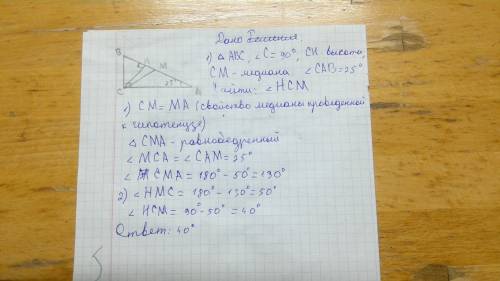 Дано Решение.
1) △ ABC, ∠C = 90°, CH высота,
CM - медиана ∠CAB = 25°
Найти: ∠HCM
B
H
M
C
25°
A
1) CM = MA (свойство медианы проведенной
к гипотенузе)
△ CMA - равнобедренный
∠MCA = ∠CAM = 25°
∠ CMA = 180° - 50° = 130°
2) ∠HMC = 180° - 130° = 50°
∠HCM = 90° - 50° = 40°
Ответ: 40°